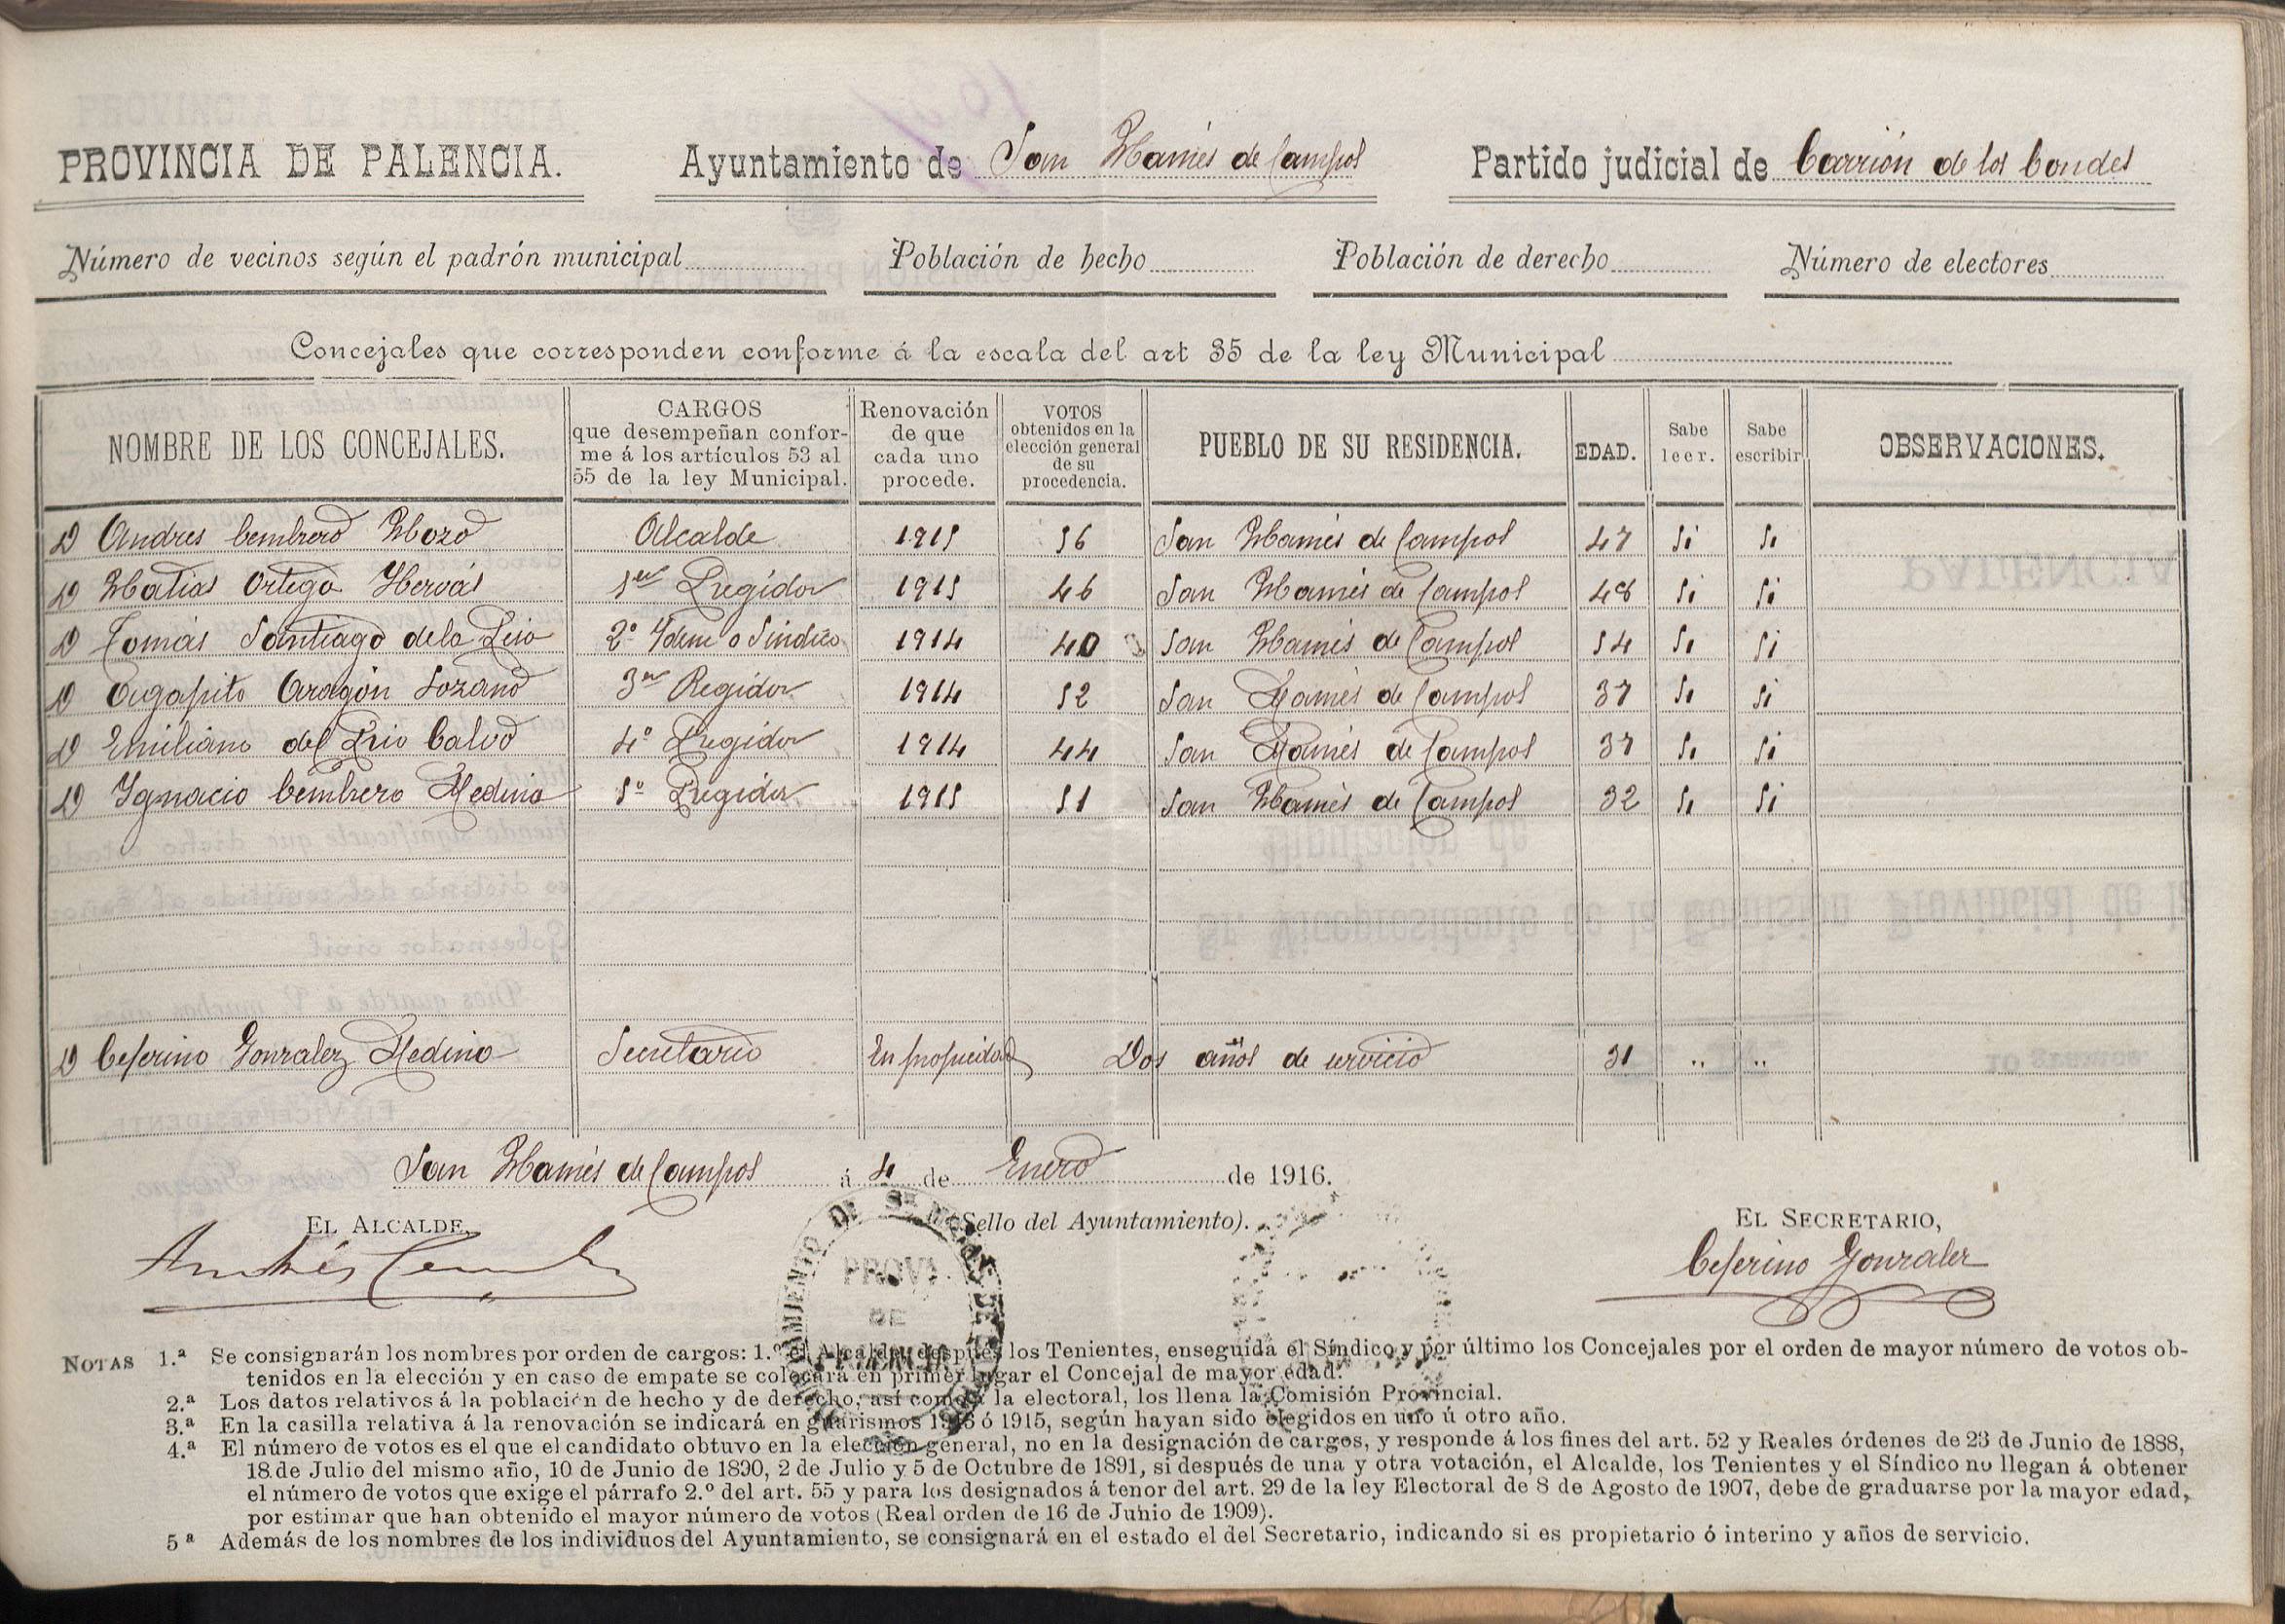 PROVINCIA DE PALENCIA. Ayuntamiento de San Mamés de Campos Partido judicial de Carrión de los Condes
Número de vecinos según el padrón municipal Población de hecho Población de derecho Número de electores
Concejales que corresponden conforme á la escala del art 35 de la ley Municipal
NOMBRE DE LOS CONCEJALES.
CARGOS
que desempeñan confor-
me á los artículos 53 al
55 de la ley Municipal.
Renovación
de que
cada uno
procede.
VOTOS
obtenidos en la
elección general
de su
procedencia.
PUEBLO DE SU RESIDENCIA.
EDAD.
Sabe
leer.
Sabe
escribir
OBSERVACIONES.
D Andres Cembrero Mozo Alcalde 1915 56 San Mamés de Campos 47 Si Si
D Matias Ortega Hervás 1er Regidor 1915 46 San Mamés de Campos 48 Si Si
D Tomás Santiago de la Rio 2º Ydem o Sindico 1914 40 San Mamés de Campos 54 Si Si
D Agapito Aragón Lozano 3er Regidor 1914 52 San Mamés de Campos 37 Si Si
D Emiliano del Rio Calvo 4º Regidor 1914 44 San Mamés de Campos 37 Si Si
D Ygnacio Cembrero Medina 5º Regidor 1915 51 San Mamés de Campos 32 Si Si
D Ceferino Gonzalez Medina Secretario En propiedad Dos años de servicio 31 " "
San Mamés de Campos á 4 de Enero de 1916.
EL ALCALDE, (Sello del Ayuntamiento). EL SECRETARIO,
Andrés Ceferino Gonzalez
PROVI
DE
NOTAS 1.ª Se consignarán los nombres por orden de cargos: 1.º el Alcalde, después los Tenientes, enseguida el Síndico y por último los Concejales por el orden de mayor número de votos ob-
tenidos en la elección y en caso de empate se colocará en primer lugar el Concejal de mayor edad.
2.ª Los datos relativos á la población de hecho y de derecho, así como á la electoral, los llena la Comisión Provincial.
3.ª En la casilla relativa á la renovación se indicará en guarismos 1913 ó 1915, según hayan sido elegidos en uno ú otro año.
4.ª El número de votos es el que el candidato obtuvo en la elección general, no en la designación de cargos, y responde á los fines del art. 52 y Reales órdenes de 23 de Junio de 1888,
18 de Julio del mismo año, 10 de Junio de 1890, 2 de Julio y 5 de Octubre de 1891, si después de una y otra votación, el Alcalde, los Tenientes y el Síndico no llegan á obtener
el número de votos que exige el párrafo 2.º del art. 55 y para los designados á tenor del art. 29 de la ley Electoral de 8 de Agosto de 1907, debe de graduarse por la mayor edad,
por estimar que han obtenido el mayor número de votos (Real orden de 16 de Junio de 1909).
5ª Además de los nombres de los individuos del Ayuntamiento, se consignará en el estado el del Secretario, indicando si es propietario ó interino y años de servicio.